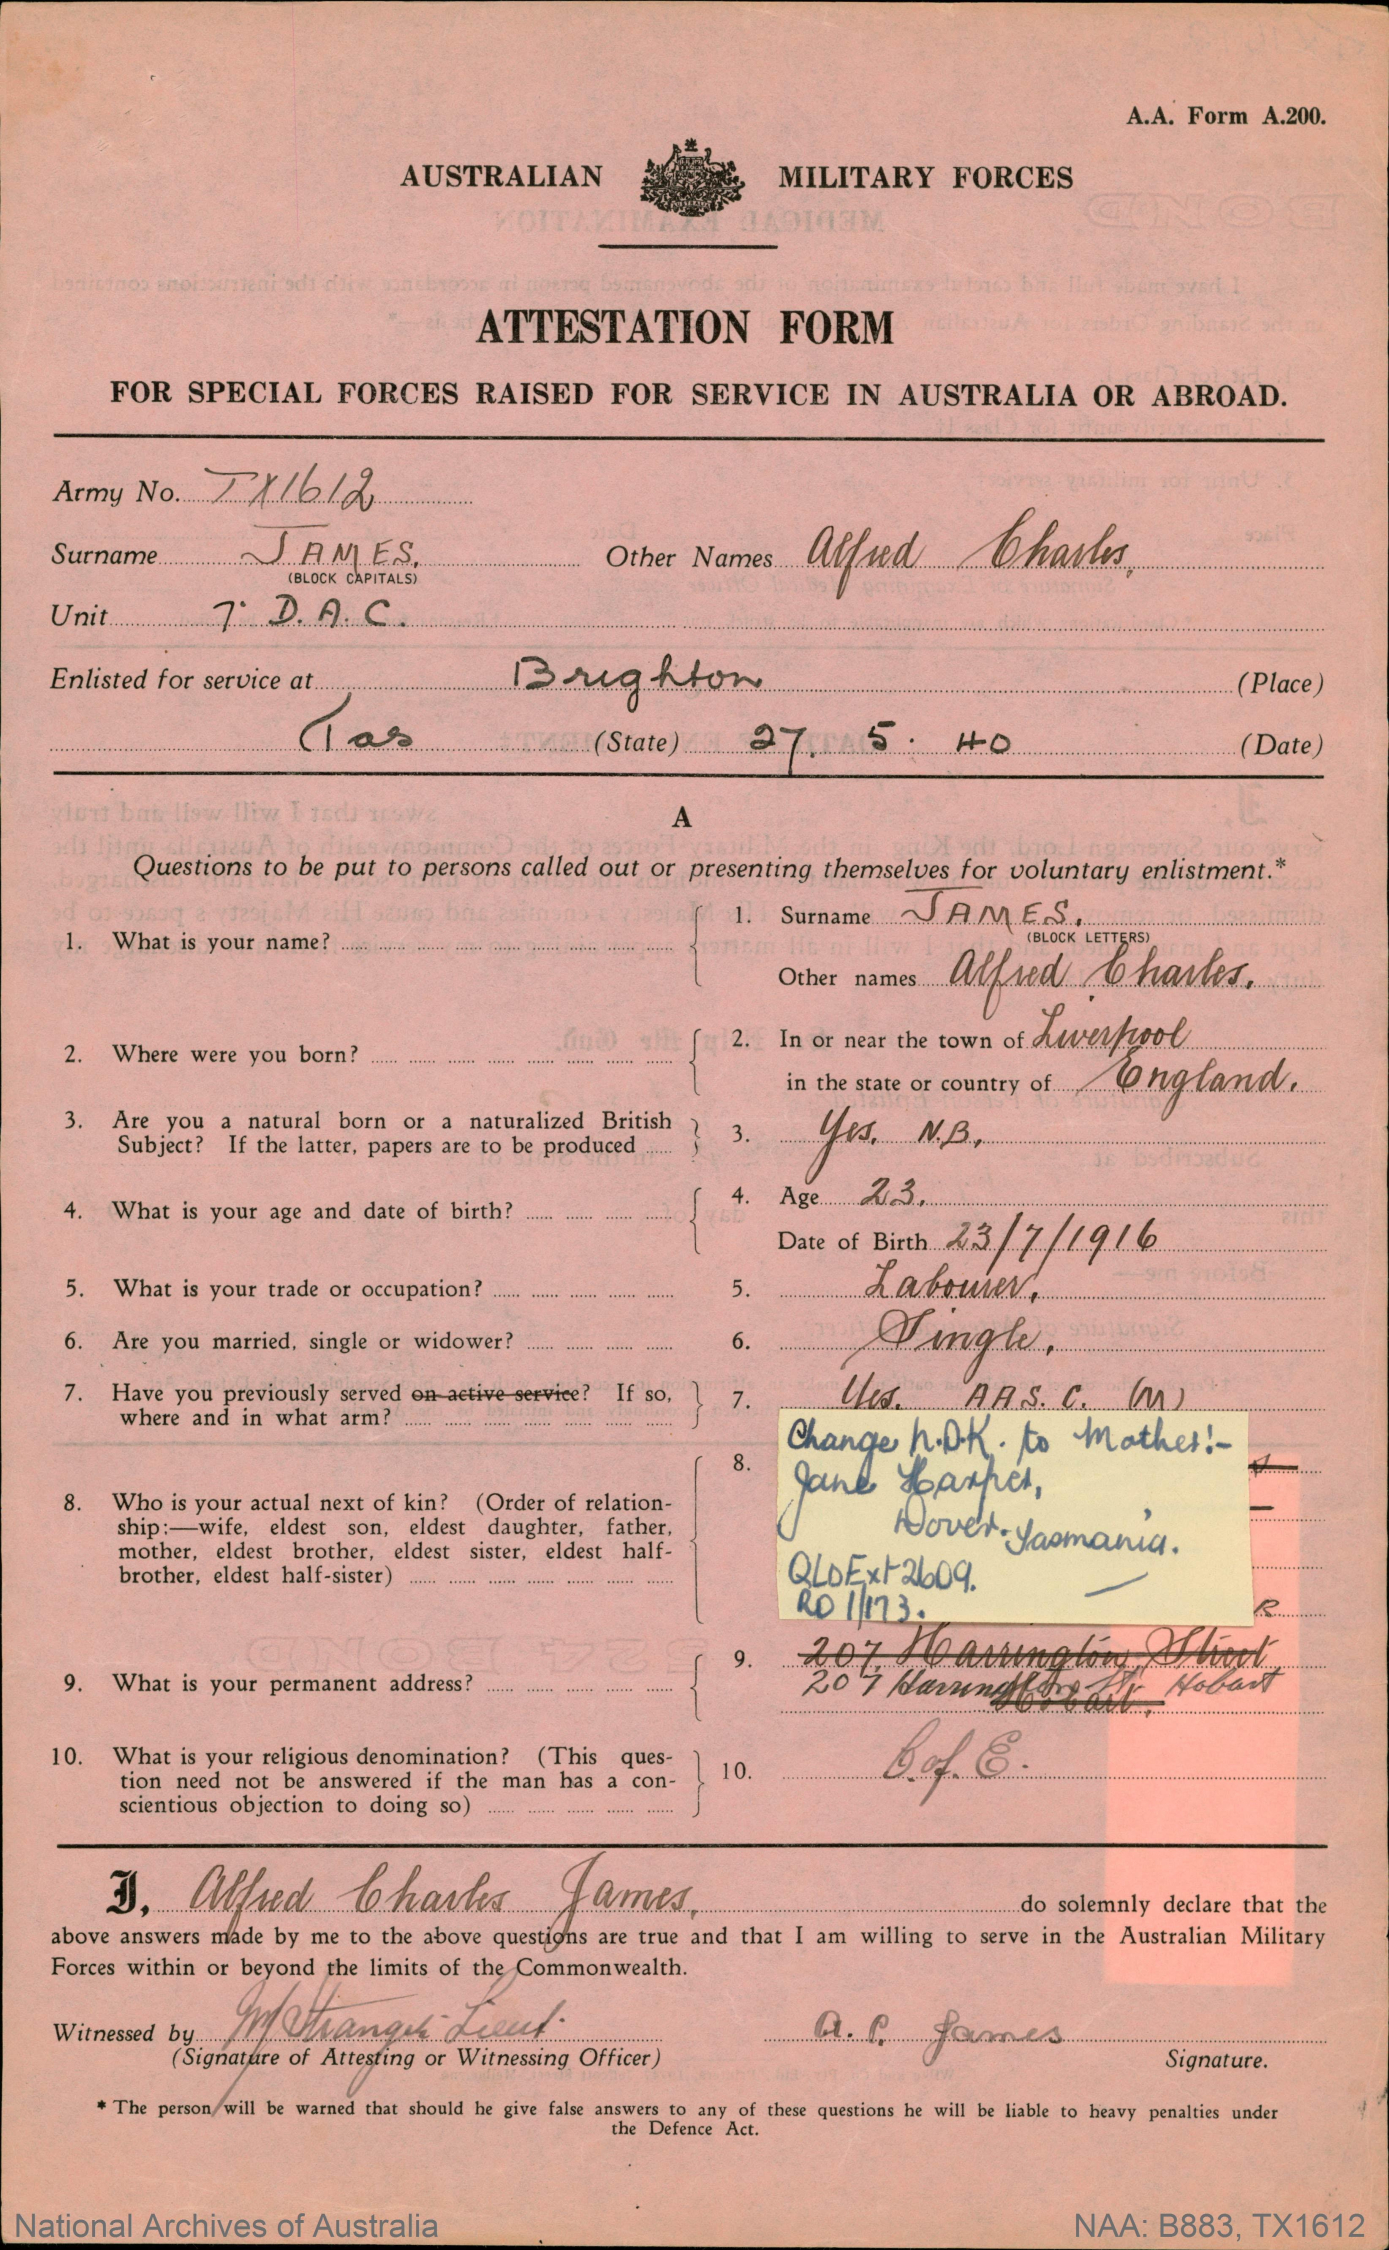 A.A. Form A.200.
AUSTRALIAN MILITARY FORCES
ATTESTATION FORM
FOR SPECIAL FORCES RAISED FOR SERVICE IN AUSTRALIA OR ABROAD.
Army No. TX1612
Surname JAMES. Other Names Alfred Charles.
(BLOCK CAPITALS)
Unit 7. D.A.C.
Enlisted for service at Brighton (Place)
Tas (State) 27. 5. 40 (Date)
A
Questions to be put to persons called out or presenting themselves for voluntary enlistment.*
1. What is your name? 1. Surname JAMES.
(BLOCK LETTERS)
Other names Alfred Charles.
2. Where were you born? 2. In or near the town of Liverpool
in the state or country of England.
3. Are you a natural born or a naturalized British
Subject? If the latter, papers are to be produced 3. Yes. N.B.
4. What is your age and date of birth? 4. Age 23.
Date of Birth 23/7/1916
5. What is your trade or occupation? 5. Labourer.
6. Are you married, single or widower? 6. Single.
7. Have you previously served on active service? If so,
where and in what arm? 7. Yes. AASC. (M)
8. Who is your actual next of kin? (Order of relation-
ship:—wife, eldest son, eldest daughter, father,
mother, eldest brother, eldest sister, eldest half-
brother, eldest half-sister) 8.
Change N.O.K. to Mother:-
Jane Harper,
Dover. Tasmania.
QLD Ext 2609.
RO 1/173.
R
9. What is your permanent address? 9. 207 Harrington Street
207 Harrington St. Hobart
Hobart.
10. What is your religious denomination? (This ques-
tion need not be answered if the man has a con-
scientious objection to doing so) 10. C. of. E.
I, Alfred Charles James. do solemnly declare that the
above answers made by me to the above questions are true and that I am willing to serve in the Australian Military
Forces within or beyond the limits of the Commonwealth.
Witnessed by Lieut. A. C. James
(Signature of Attesting or Witnessing Officer) Signature.
* The person will be warned that should he give false answers to any of these questions he will be liable to heavy penalties under
the Defence Act.
National Archives of Australia NAA: B883, TX1612